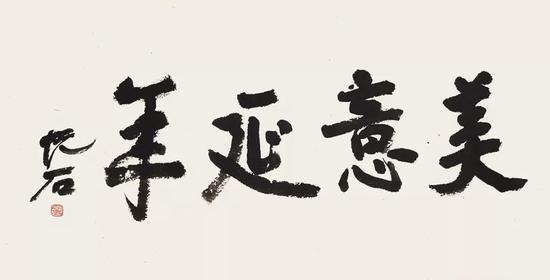 美意延年
石